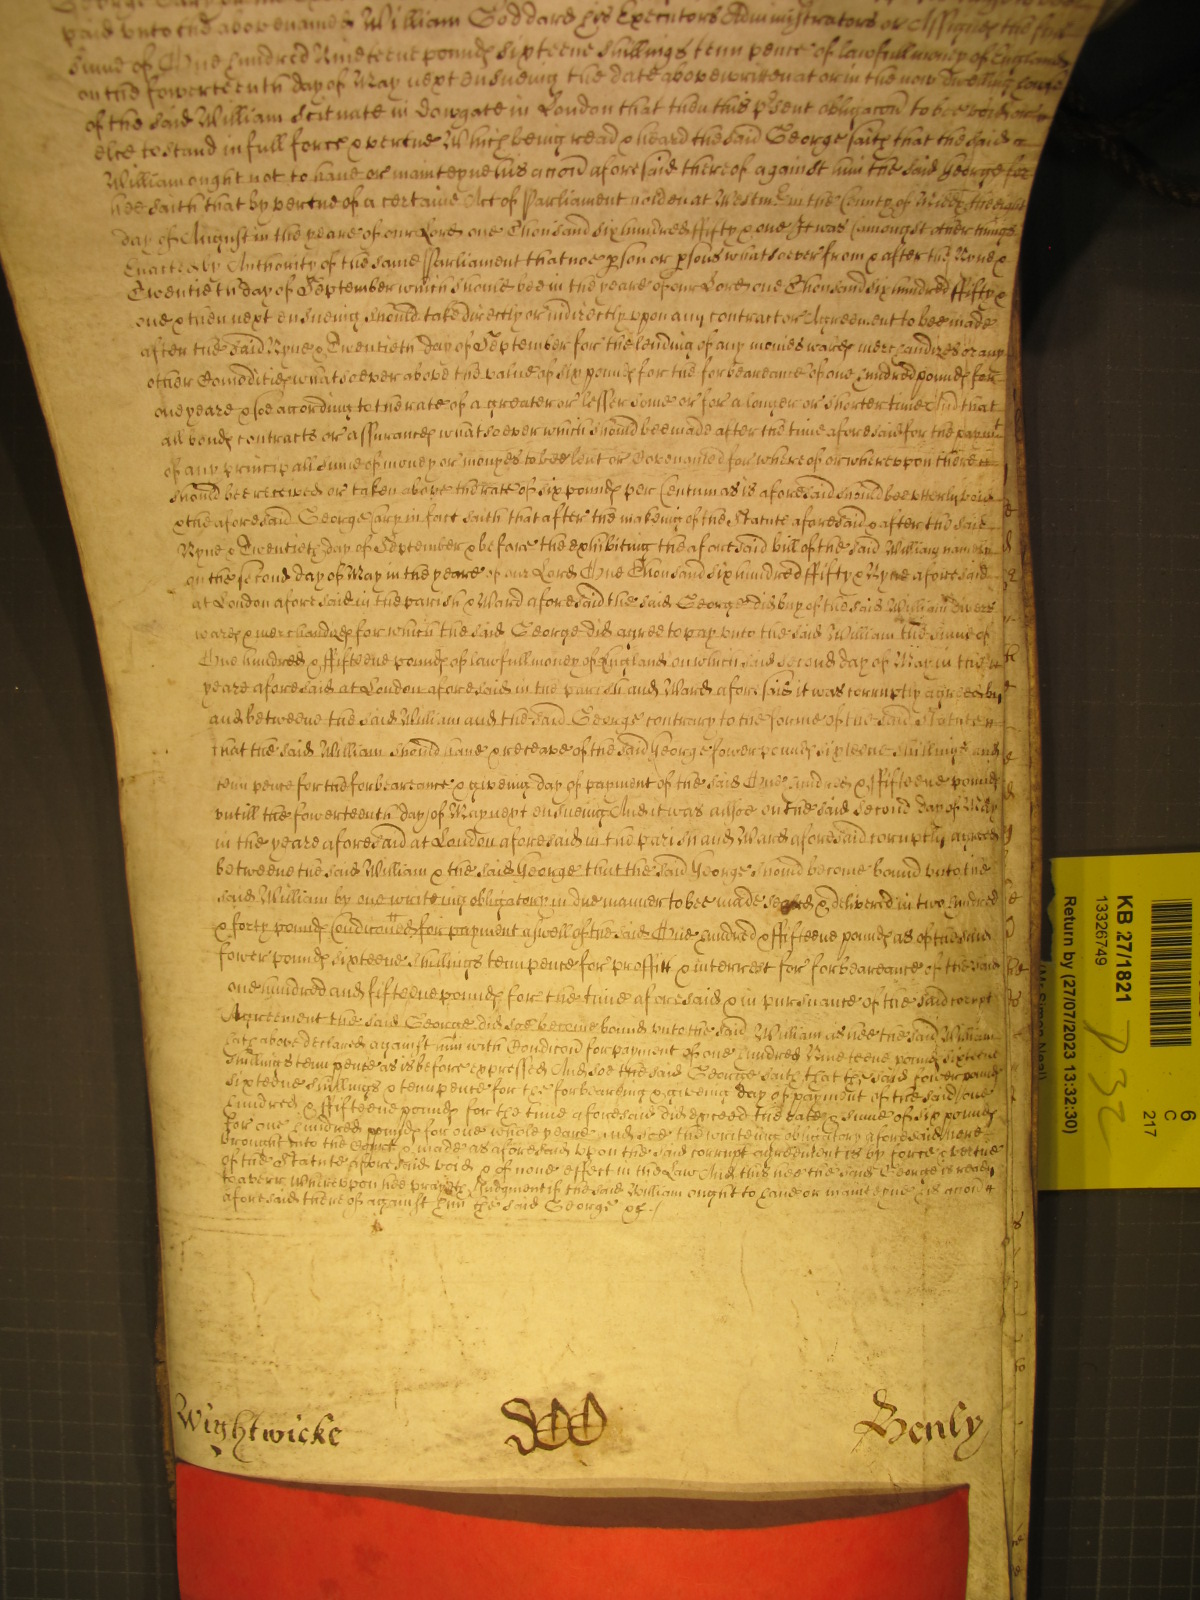 paid unto the abovenamed William Goddard his Executors Administrators or Assignes the full
sume of One hundred Nineteene pounds sixteene shillings tenn pence of lawfull money of England
on the fowerteenth day of May next ensueing the date abovewritten at or in the now dwelling house
of the said William scituate in Dowgate in London that then this psent obligacon to bee void or
else to stand in full force & vertue Which being read & heard the said George saith that the said
William ought not to have or mainteyne his accon aforesaid thereof against him the said George for
hee saith that by vertue of a certaine Act of Parliament holden at Westm in the County of Middx the eight
day of August in the yeare of our Lord one Thousand six hundred ffifty & one It was (amongst other things
Enacted by Authority of the same Parliament that noe pson or psons whatsoever from & after the Nyne &
Twentieth day of September which should bee in the yeare of our Lord one Thousand six hundred ffifty &
one & then next ensueing should take directly or indirectly upon any contract or Agreement to bee made
after the said Nyne & Twentieth day of September for the lending of any monies wares merchandizes or any
other Comodities whatsoever above the value of six pounds for the forbeareance of one hundred pounds for
one yeare & soe according to the rate of a greater or lesser some or for a longer or shorter time And that
all bonds contracts or assurances whatsoever which should bee made after the time aforesaid for the paymt
of any principall sume of money or monyes to bee lent or Covenanted for whereof or whereupon there
should bee received or taken above the rate of six pounds per Centum as is aforesaid should bee utterly void
& the aforesaid George Cary in fact saith that after the making of the Statute aforesaid & after the said
Nyne & Twentieth day of September & before the exhibiting the aforesaid bill of the said William namely
on the second day of May in the yeare of our Lord One Thousand six hundred ffifty & Nyne aforesaid
at London aforesaid in the parish & Ward aforesaid the said George did buy of the said William divers
wares & merchandizes for which the said George did agree to pay unto the said William the sume of
One hundred & ffifteene pounds of lawfull money of England on which said second day of May in the
yeare aforesaid at London aforesaid in the parish and Ward aforesaid it was corruptly agreed by
and betweene the said William and the said George contrary to the forme of the said Statute
that the said William should have & receave of the said George fower pounds sixteene shillings and
tenn pence for the forbeareance & giveing day of payment of the said One hundred & ffifteene pounds
untill the fowerteenth day of May next ensueing And it was alsoe on the said second day of May
in the yeare aforesaid at London aforesaid in the parish and Ward aforesaid corruptly agreed
betweene the said William & the said George that the said George should become bound unto the
said William by one writeing obligatory in due manner to bee made sealed & delivered in two hundred
& forty pounds Condiconed for payment aswell of the said One hundred & ffifteene pounds as of the said
fower pounds sixteene shillings tenn pence for proffitt & interrest for forbeareance of the said
one hundred and fifteene pounds for the time aforesaid & in pursuance of the said corupt
Agreement the said George did soe become bound unto the said William as hee the said William
hath above declared against him with Condicon for payment of one hundred Nineteene pounds sixteene
shillings tenn pence as is before expressed And soe the said George saith that the said fower pounds
sixteene shillings & tenn pence for the forbearing & giveing day of payment of the said one
hundred & ffifteene pounds for the time aforesaid did exceed the rate & sume of six pounds
for one hundred pounds for one whole yeare And soe the writeing obligatory aforesaid here
brought into the Court & made as aforesaid upon the said corrupt agreement is by force & vertue
of the Statute aforesaid void & of none effect in the Law And this hee the said George is ready
to averr whereupon hee prayeth Judgment if the said William ought to have or mainteyne his accon
aforesaid thereof against him the said George &c
Wightwicke
Henly
KB 27/1821
13326749
Return by (27/07/2023 13:32:30)
6
C
217